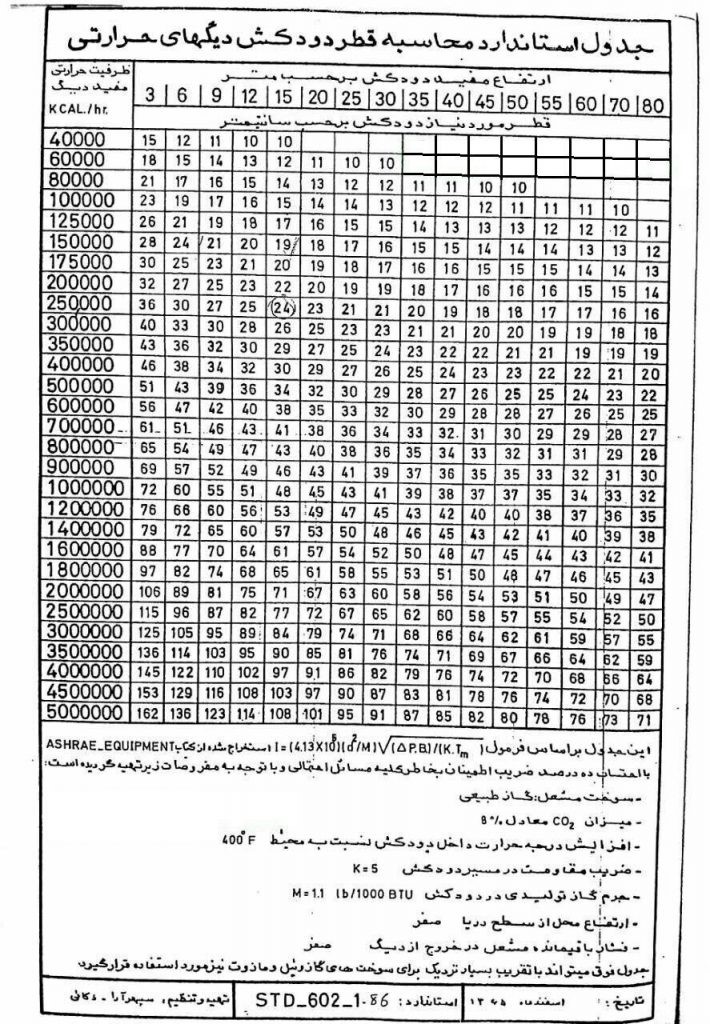 جدول استاندارد محاسبه قطر دودکش دیگهای حرارتی
ظرفیت حرارتی مفید دیگ KCAL./hr.
ارتفاع مفید دودکش برحسب متر
3 6 9 12 15 20 25 30 35 40 45 50 55 60 70 80
قطر مورد نیاز دودکش برحسب سانتیمتر
40000 15 12 11 10 10
60000 18 15 14 13 12 11 10 10
80000 21 17 16 15 14 13 12 12 11 11 10 10
100000 23 19 17 16 15 14 14 13 12 12 12 11 11 11 10
125000 26 21 19 18 17 16 15 15 14 13 13 13 12 12 12 11
150000 28 24 21 20 19 18 17 16 15 15 14 14 14 13 13 12
175000 30 25 23 21 20 19 18 17 16 16 15 15 15 14 14 13
200000 32 27 25 23 22 20 19 19 18 17 16 16 16 15 15 14
250000 36 30 27 25 24 23 21 21 20 19 18 18 17 17 16 16
300000 40 33 30 28 26 25 23 23 21 21 20 20 19 19 18 18
350000 43 36 32 30 29 27 25 24 23 22 22 21 21 19 19 19
400000 46 38 34 32 30 29 27 26 25 24 23 23 22 22 21 20
500000 51 43 39 36 34 32 30 29 28 27 26 25 25 24 23 22
600000 56 47 42 40 38 35 33 32 30 29 28 28 27 26 25 25
700000 61 51 46 43 41 38 36 34 33 32 31 30 29 29 28 27
800000 65 54 49 47 43 40 38 36 35 34 33 32 31 31 29 28
900000 69 57 52 49 46 43 41 39 37 36 35 35 33 32 31 30
1000000 72 60 55 51 48 45 43 41 39 38 37 37 35 34 33 32
1200000 76 66 60 56 53 49 47 45 43 42 40 40 38 37 36 35
1400000 79 72 65 60 57 53 50 48 46 45 43 42 41 40 39 38
1600000 88 77 70 64 61 57 54 52 50 48 47 45 44 43 42 41
1800000 97 82 74 68 65 61 58 55 53 51 50 48 47 46 45 43
2000000 106 89 81 75 71 67 63 60 58 56 54 53 51 50 49 47
2500000 115 96 87 82 77 72 67 65 62 60 58 57 55 54 52 50
3000000 125 105 95 89 84 79 74 71 68 66 64 62 61 59 57 55
3500000 136 114 103 95 90 85 81 76 74 71 69 67 66 64 62 59
4000000 145 122 110 102 97 91 86 82 79 76 74 72 70 68 66 64
4500000 153 129 116 108 103 97 90 87 83 81 78 76 74 72 70 68
5000000 162 136 123 114 108 101 95 91 87 85 82 80 78 76 73 71
این جدول براساس فرمول I=(4.13X10⁵)(d²/M)√(ΔP.B)/(K.Tm) استخراج شده از کتاب ASHRAE_EQUIPMENT
با احتساب ده درصد ضریب اطمینان بخاطر کلیه مسائل احتمالی و با توجه به مفروضات زیر تهیه گردیده است:
- سوخت مشعل: گاز طبیعی
- میزان CO₂ معادل 8%
- افزایش درجه حرارت داخل دودکش نسبت به محیط 400°F
- ضریب مقاومت در مسیر دودکش K=5
- جرم گاز تولیدی در دودکش M=1.1 lb/1000 BTU
- ارتفاع محل از سطح دریا صفر
- فشار باقیمانده مشعل در خروج از دیگ صفر
جدول فوق میتواند با تقریب بسیار نزدیک برای سوخت های گازوئیل و مازوت نیز مورد استفاده قرار گیرد
تاریخ: اسفندماه ۱۳۶۵ استاندارد: STD_602_1-86 تهیه و تنظیم: سپهرآرا - ذکائی